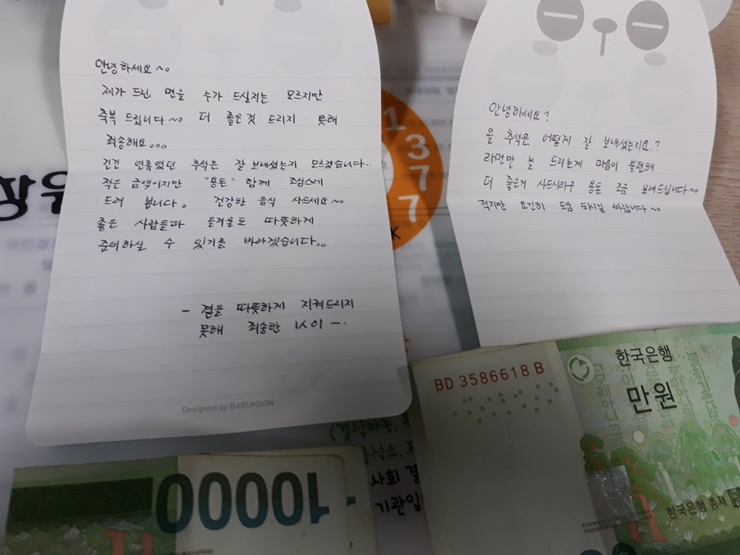 안녕하세요~
제가 드린 면을 누가 드실지는 모르지만
축복 드립니다~ 더 좋은것 드리지 못해
죄송해요...
긴긴 연휴였던 추석은 잘 보내셨는지 모르겠습니다..
적은 금액이지만 "용돈" 함께 조심스레
드려 봅니다. 건강한 음식 사드세요~
좋은 사람들과 올겨울도 따뜻하게
준비하실 수 있기를 바라겠습니다.
- 곁을 따뜻하게 지켜드리지
못해 죄송한 1人이 -.
Designed by BARUNSON
안녕하세요?
올 추석은 어떻게 잘 보내셨는지요?
라면만 늘 드리는게 마음이 불편해
더 좋은거 사드시라구 용돈 조금 보내드립니다~
적지만 요긴히 도움 되시길 바랍니다~
창원
1377
K
(결식아동,
급식소,
사회
기관
10000
BD 3586618 B
한국은행
만원
한국은행 총재